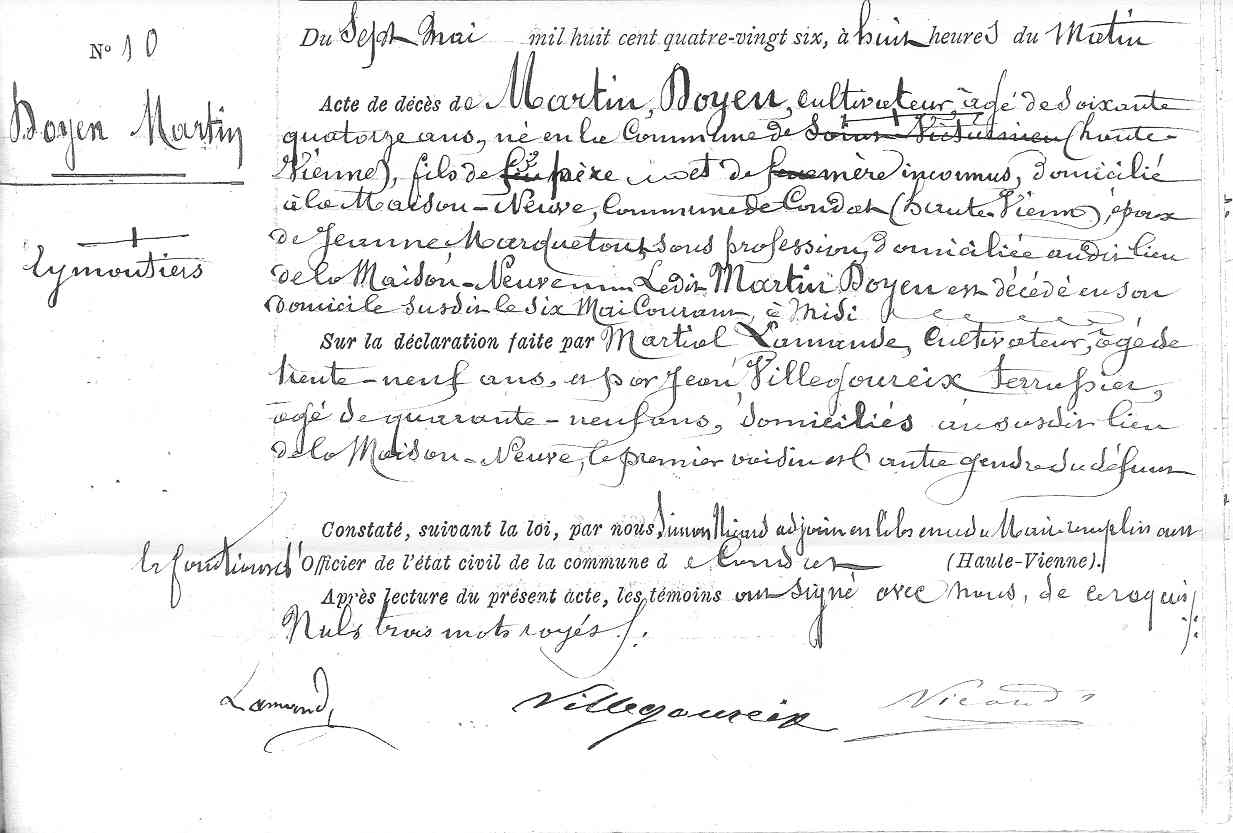 N° 10
Doyen Martin
Eymoutiers
Du Sept Mai mil huit cent quatre-vingt six, à huit heures du Matin
Acte de décès de Martin, Doyen, cultivateur, âgé de soixante
quatorze ans, né en la Commune de Saint (haute-
Vienne), fils de feu père et de feue mère inconnus, domicilié
à la Maison-Neuve, Commune de Condat (haute-Vienne), époux
de Jeanne Marquetout, sans profession, domiciliée audit lieu
de la Maison-Neuve Ledit Martin Doyen est décédé en son
domicile susdit le six Mai Courant, à Midi
Sur la déclaration faite par Martial Lamande, Cultivateur, âgé de
trente-neuf ans, et par Jean Villegoureix terrassier,
âgé de quarante-neuf ans, domiciliés au susdit lieu
de la Maison-Neuve, le premier voisin et l'autre gendre du défunt
Constaté, suivant la loi, par nous, Simon Nicard adjoint en l'absence du Maire remplissant
les fonctions d'Officier de l'état civil de la commune de Condat (Haute-Vienne).
Après lecture du présent acte, les témoins ont signé avec nous, de ce requis
Nuls trois mots rayés
Lamand
Villegoureix
Nicard